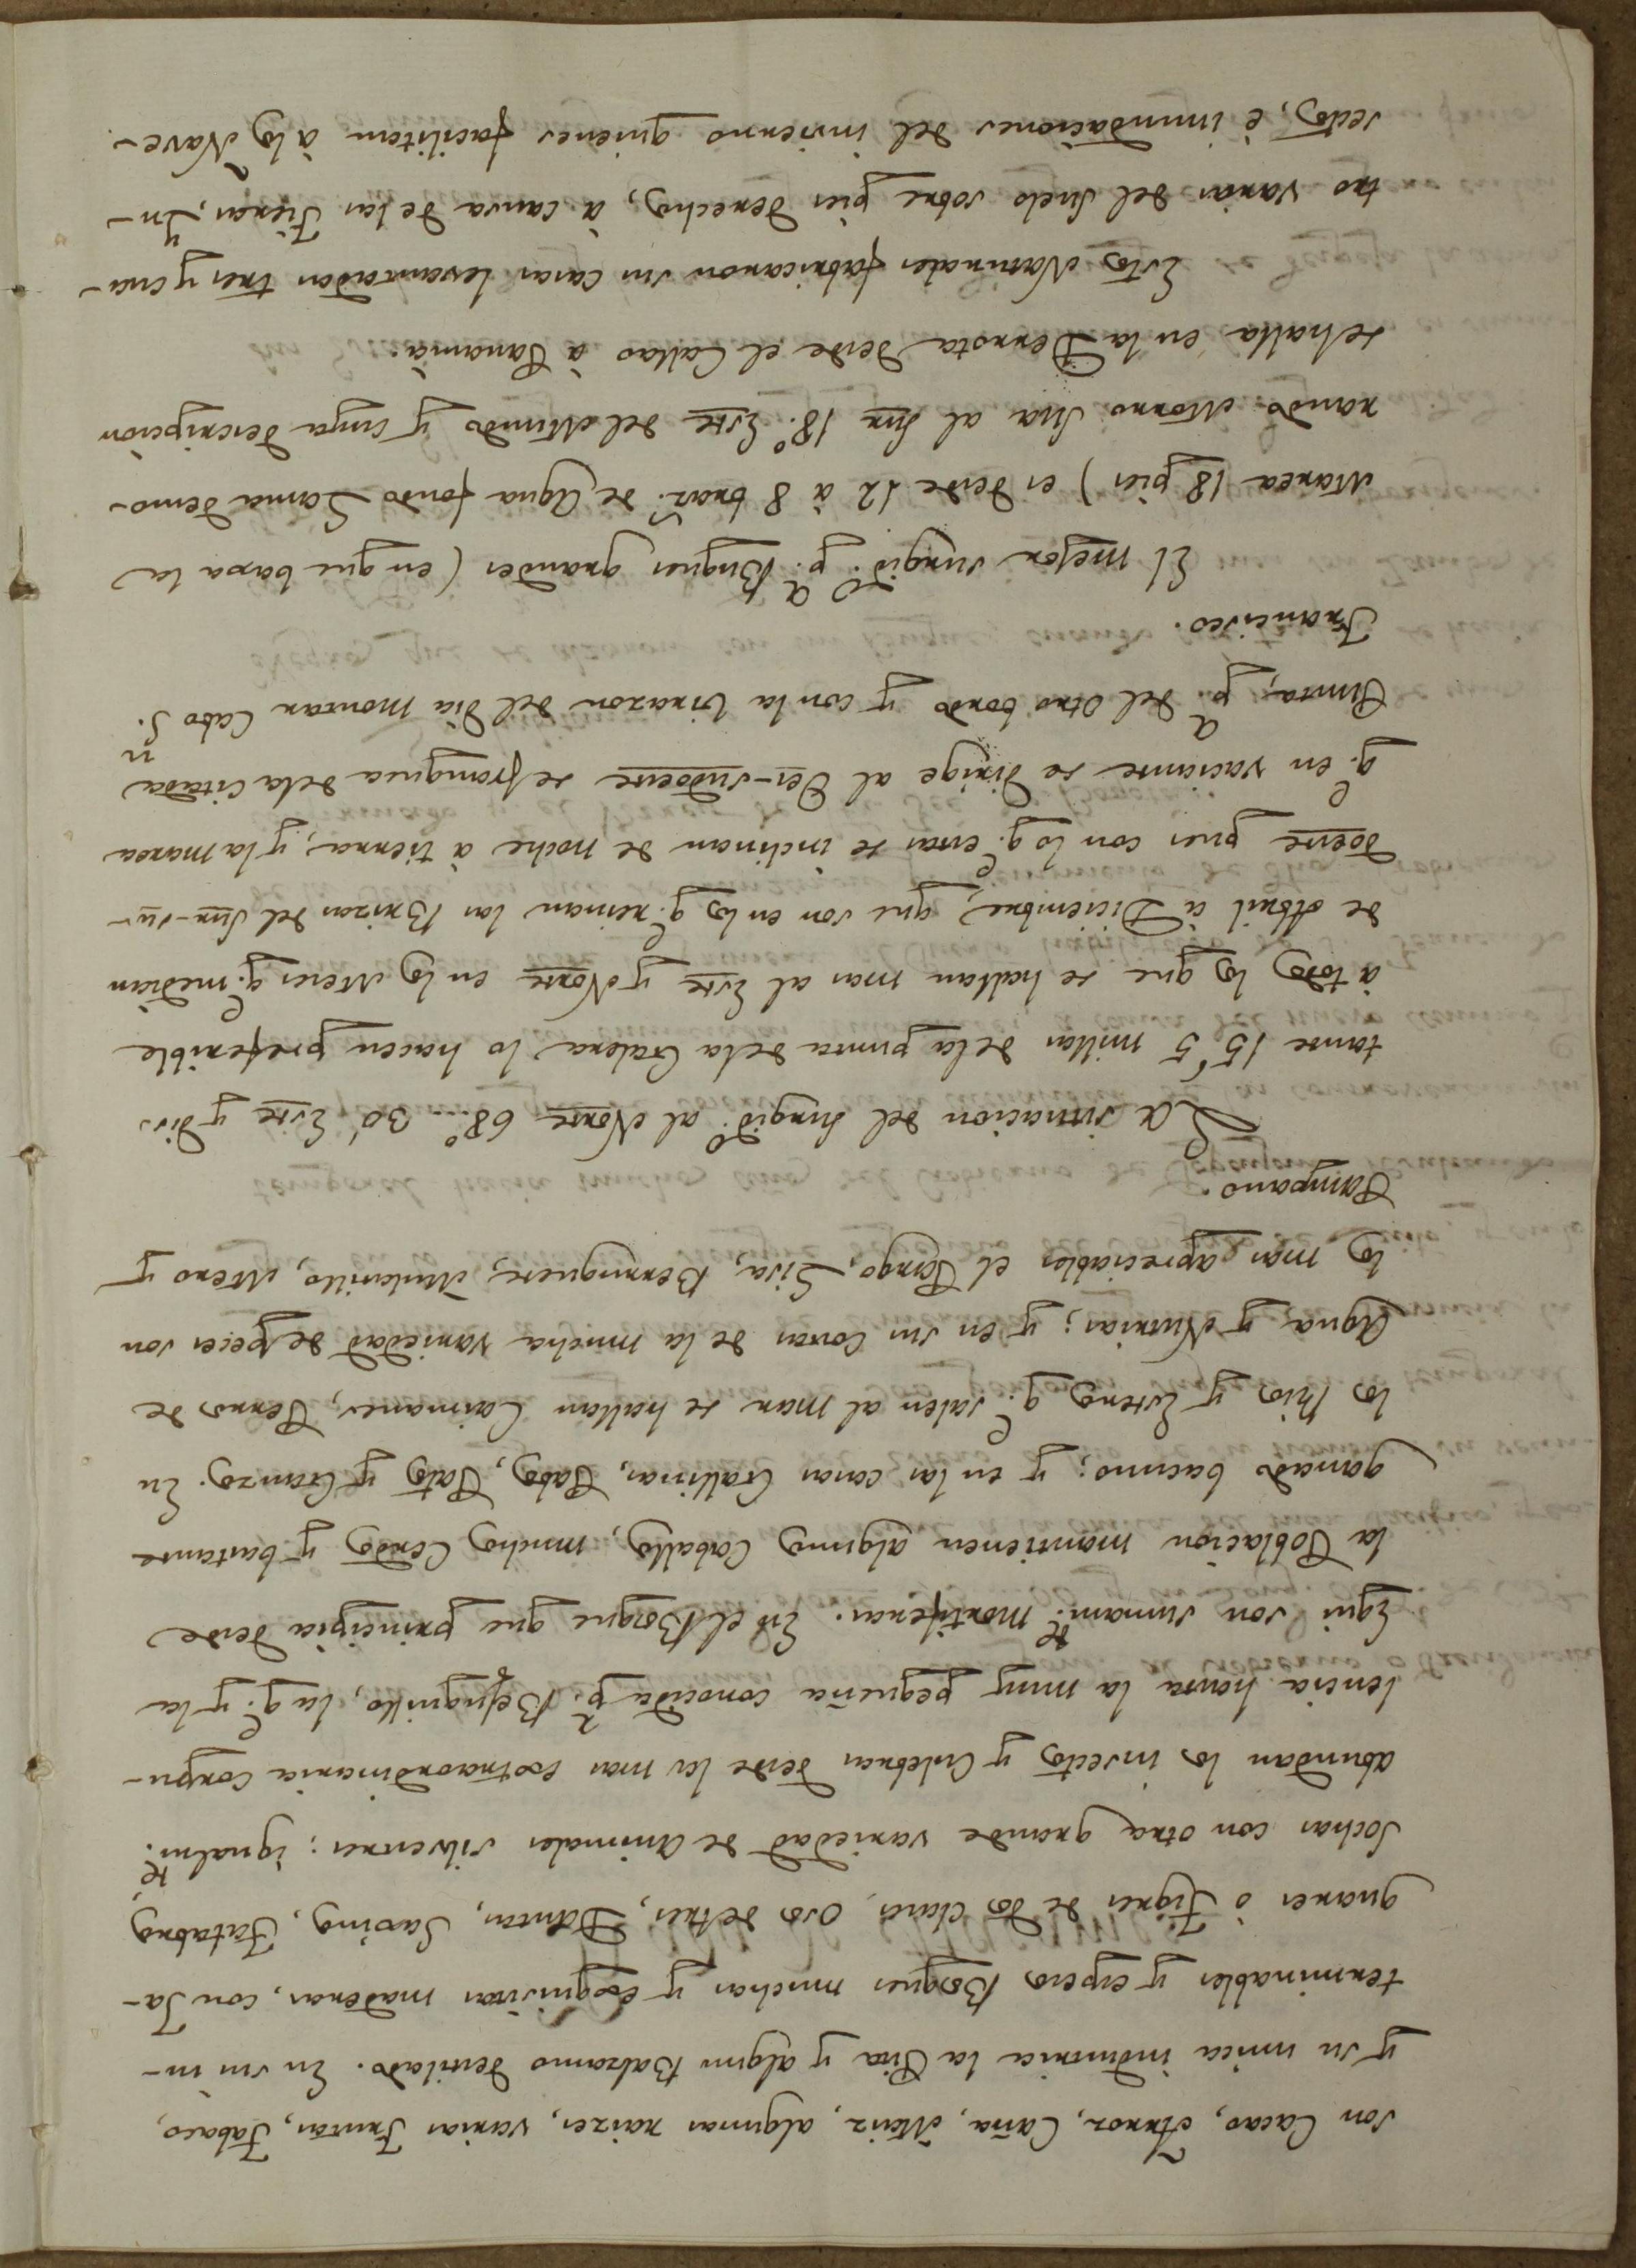 son Cacao, Arroz, Caña, Maiz, algunas raizes, varias Frutas, Tabaco,
y su unica industria la Pita y algun Balzamo destilado. En sus in-
terminables y espesos Bosques muchas y exquisitas maderas, con Ja-
guares ò Tigres de dos clases, Osos de tres, Dantas, Saxinos, Tatabros,
Sochas con otra grande variedad de Animales silvestres; igualm.te
abundan los insectos y Culebras desde la mas extraordinaria Corpu-
lencia hasta la muy pequeña conocida p.r Bejuquillo, la q.e y la
Equis son sumam.te mortiferas. En el Bosque que principia desde
la Poblacion mantienen algunos Caballos, muchos Cerdos y bastante
ganado bacuno; y en las casas Gallinas, Pabos, Patos y Ganzos. En
los Rios y Esteros q.e salen al mar se hallan Caimanes, Perros de
Agua y Nutrias; y en sus Costas de la mucha variedad de peces son
los mas apreciables el Pargo, Lisa, Berruguete, Mulatillo, Mero y
Pampano.
La situacion del surgid.o al Norte 68.° 30' Este y dis-
tante 15'5 millas de la punta de la Galera lo hacen preferible
à todos los que se hallan mas al Este y Norte en los Meses q.e median
de Abril à Diciembre, que son en los q.e reinan las Brizas del Sur-su-
doeste pues con lo q.e estas se inclinan de noche à tierra, y la marea
q.e en vaciante se dirige al Oes-sudoeste se franquea de la citada
Punta, p.a del otro bordo y con la virazon del dia montar Cabo S.n
Francisco.
El mejor surgid.o p.a Buques grandes (en que baxa la
Marea 18 pies) es desde 12 à 8 braz.s de Agua fondo Lama demo-
rando Morro Sua al Sur 18.° Este del Mundo y cuya descripcion
se halla en la Derrota desde el Callao à Panamà.
Estos Naturales fabricaron sus casas levantadas tres y cua-
tro varas del Suelo sobre pies derechos, à causa de las Fieras, Yn-
sectos, è inundaciones del invierno quienes facilitan à los Nave-